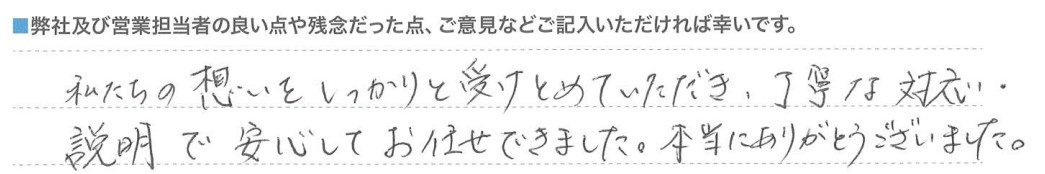 ■弊社及び営業担当者の良い点や残念だった点、ご意見などご記入いただければ幸いです。
私たちの想いをしっかりと受けとめていただき、丁寧な対応・
説明で安心してお任せできました。本当にありがとうございました。